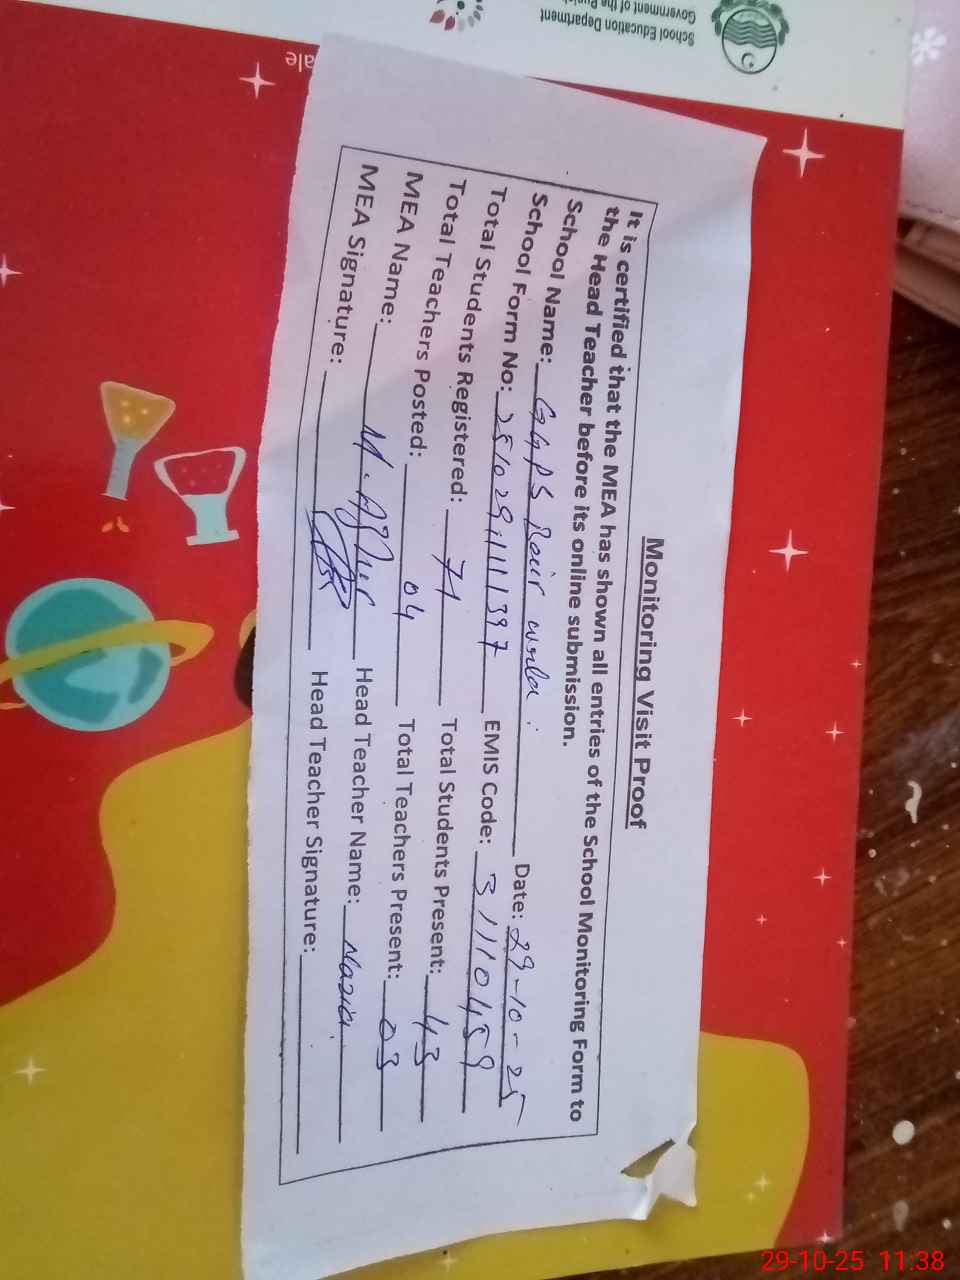 School Education Department
Government of the
ale
Monitoring Visit Proof
It is certified that the MEA has shown all entries of the School Monitoring Form to
the Head Teacher before its online submission.
School Name: GGPS wala Date: 29-10-25
School Form No: EMIS Code: 31110459
Total Students Registered: 71 Total Students Present: 43
Total Teachers Posted: 04 Total Teachers Present: 03
MEA Name: Head Teacher Name: Nazia
MEA Signature: Head Teacher Signature:
29-10-25 11:38